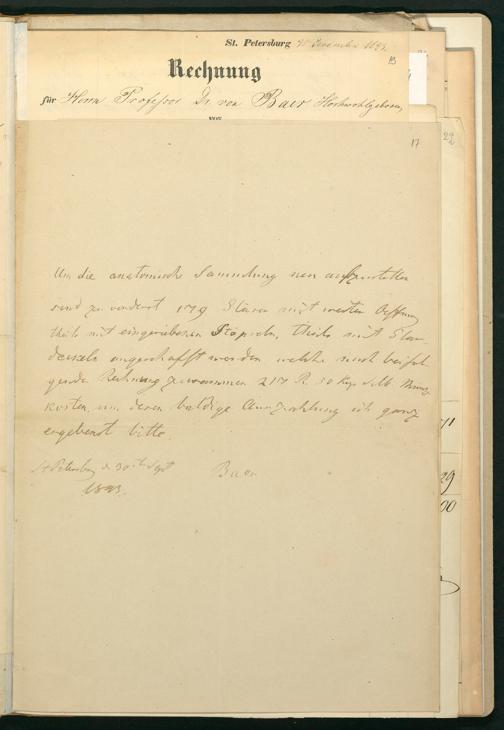 St. Petersburg
Rechnung
für Herrn Professor Dr. von Baer Hochwohlgeboren,
13
22
17
Um die anatomische Sammlung neu aufzustellen
sind zu vorderst 179 Gläser mit weiten Oeffnung
theils mit eingeriebenen Stöpseln, theils mit Glas-
deckeln angeschafft worden welche nach beifol-
gender Rechnung zusammen 217 R. 50 Kop. Silb. Münz
kosten, um deren baldige Auszahlung ich ganz
ergebenst bitte.
St Petersburg d. 30 Sept
Baer
1843.
29
00